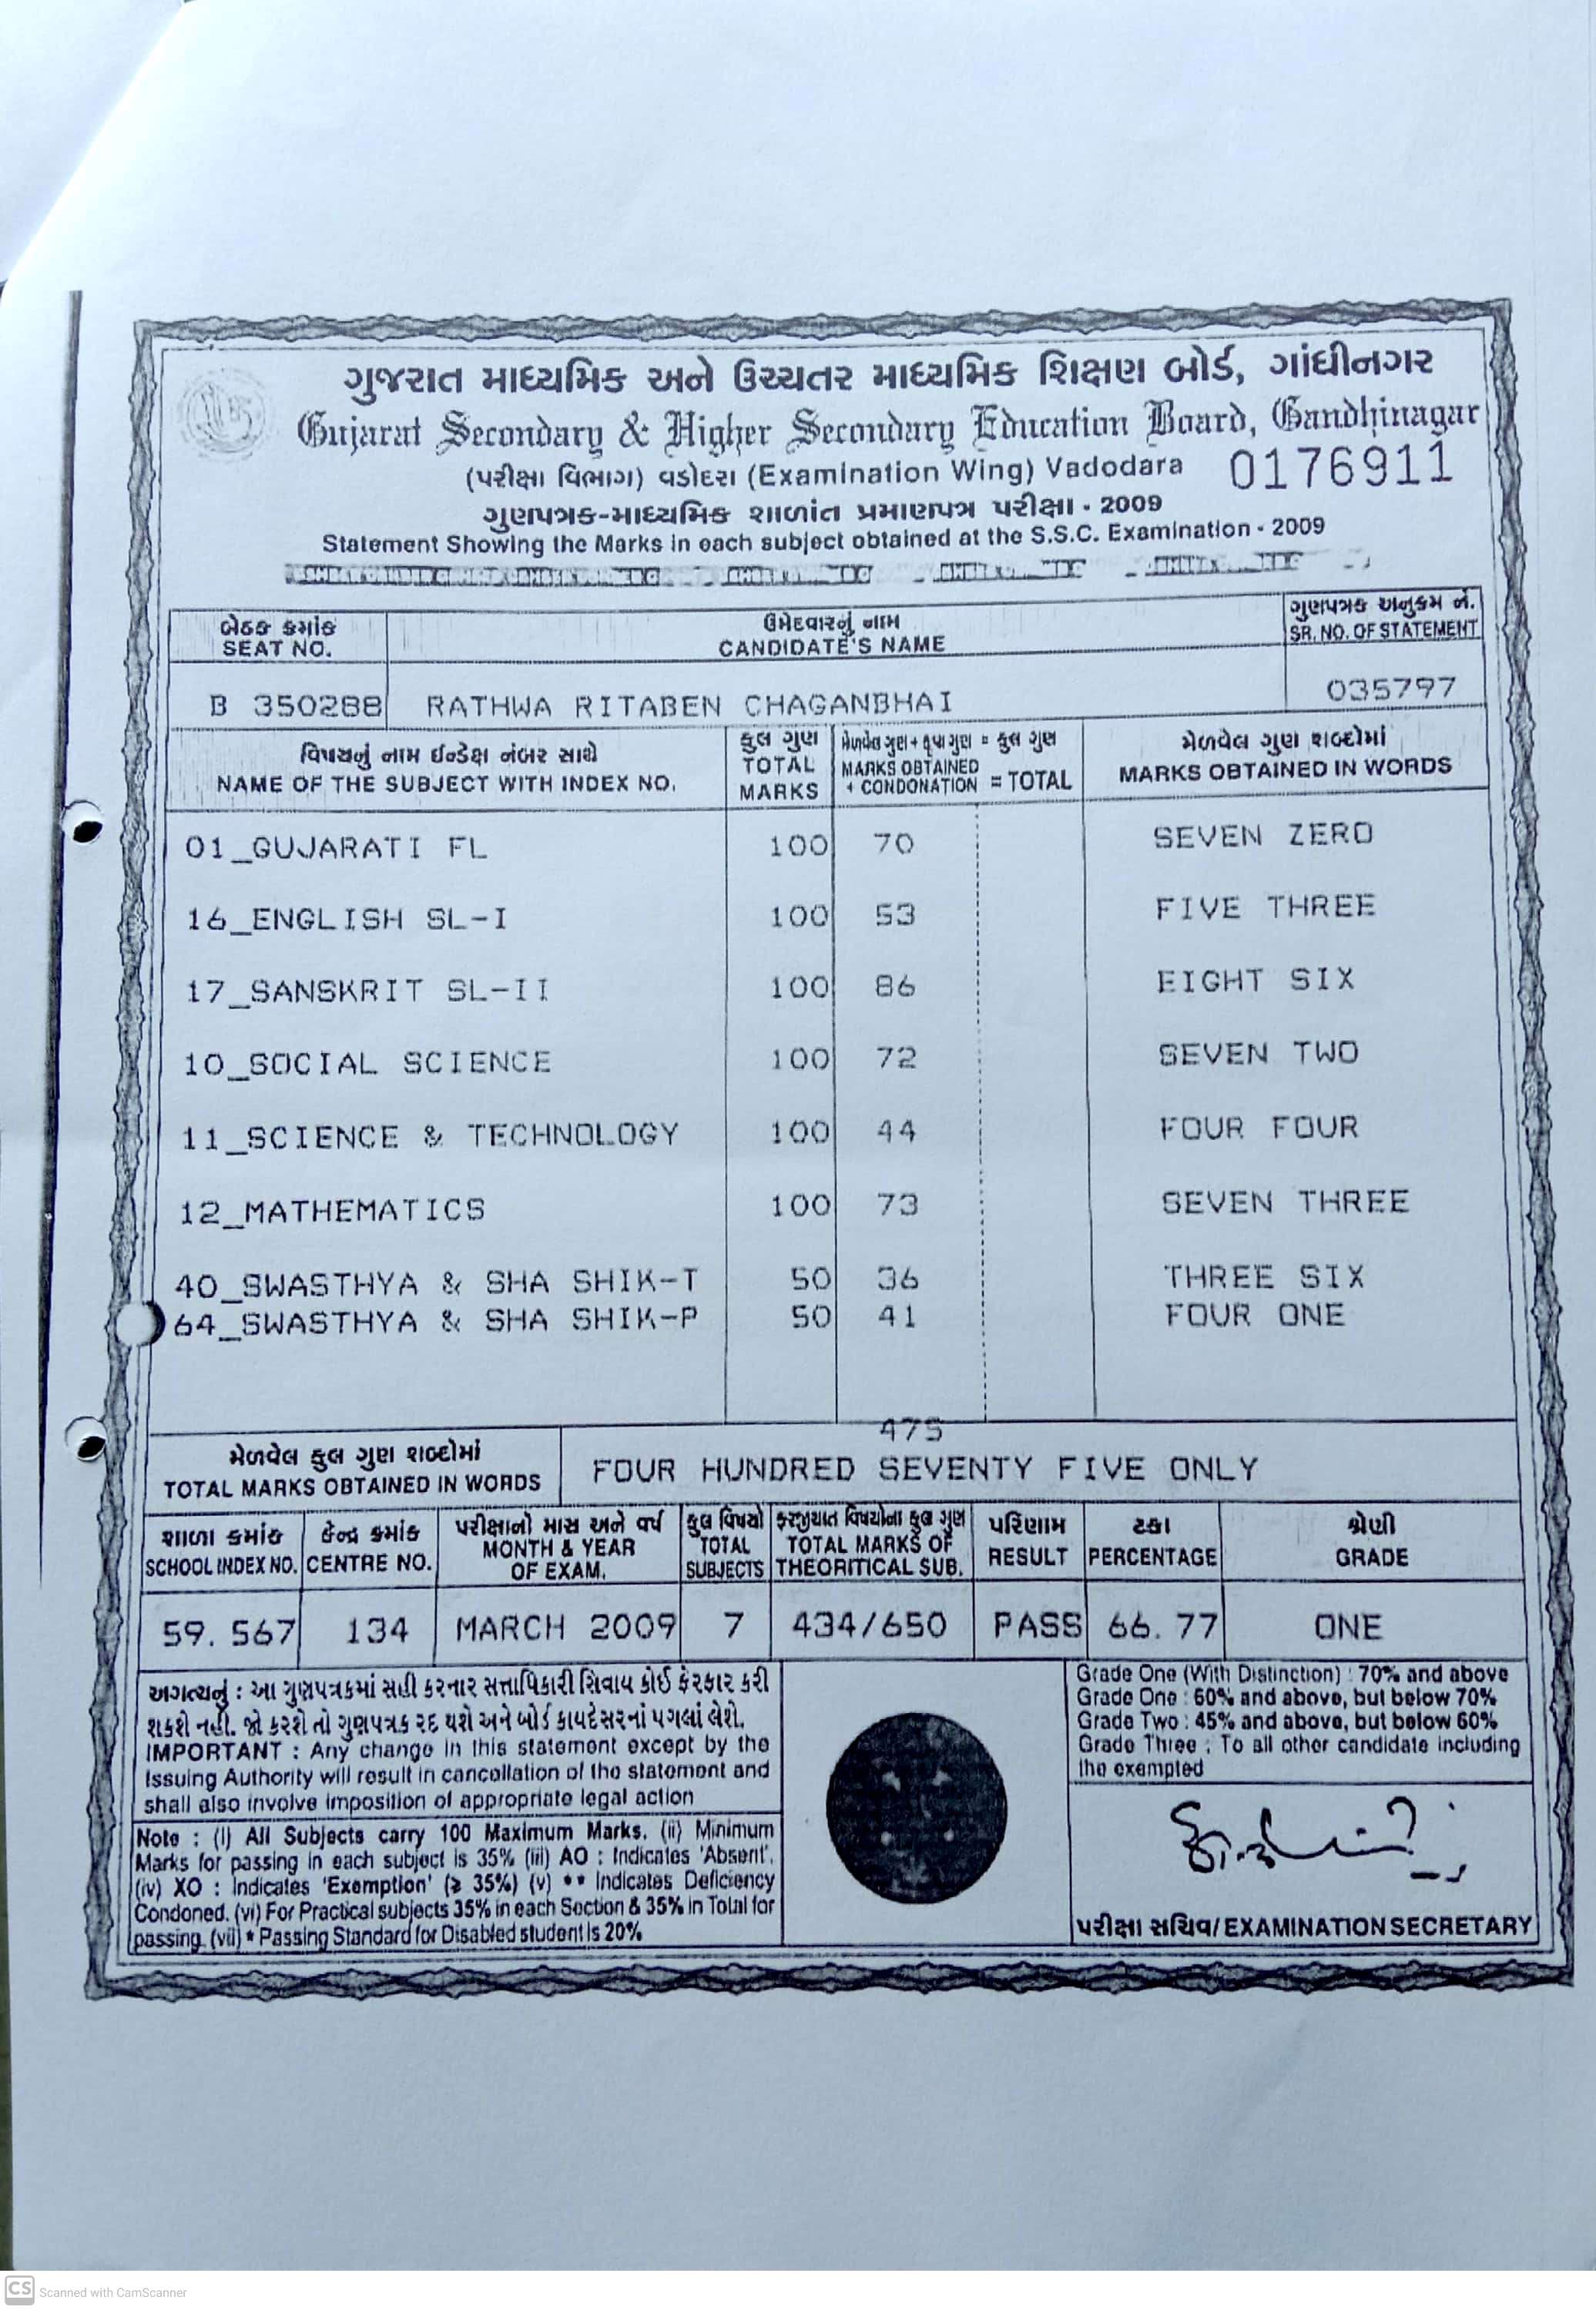 ગુજરાત માધ્યમિક અને ઉચ્ચતર માધ્યમિક શિક્ષણ બોર્ડ, ગાંધીનગર
Gujarat Secondary & Higher Secondary Education Board, Gandhinagar
(પરીક્ષા વિભાગ) વડોદરા (Examination Wing) Vadodara 0176911
ગુણપત્રક-માધ્યમિક શાળાંત પ્રમાણપત્ર પરીક્ષા - 2009
Statement Showing the Marks in each subject obtained at the S.S.C. Examination - 2009
બેઠક ક્રમાંક ઉમેદવારનું નામ ગુણપત્રક અનુક્રમ નં.
SEAT NO. CANDIDATE'S NAME SR. NO. OF STATEMENT
B 350288 RATHWA RITABEN CHAGANBHAI 035797
વિષયનું નામ ઈન્ડેક્ષ નંબર સાથે કુલ ગુણ મેળવેલ ગુણ + કૃપા ગુણ = કુલ ગુણ મેળવેલ ગુણ શબ્દોમાં
NAME OF THE SUBJECT WITH INDEX NO. TOTAL MARKS MARKS OBTAINED + CONDONATION = TOTAL MARKS OBTAINED IN WORDS
01_GUJARATI FL 100 70 SEVEN ZERO
16_ENGLISH SL-I 100 53 FIVE THREE
17_SANSKRIT SL-II 100 86 EIGHT SIX
10_SOCIAL SCIENCE 100 72 SEVEN TWO
11_SCIENCE & TECHNOLOGY 100 44 FOUR FOUR
12_MATHEMATICS 100 73 SEVEN THREE
40_SWASTHYA & SHA SHIK-T 50 36 THREE SIX
64_SWASTHYA & SHA SHIK-P 50 41 FOUR ONE
475
મેળવેલ કુલ ગુણ શબ્દોમાં
TOTAL MARKS OBTAINED IN WORDS FOUR HUNDRED SEVENTY FIVE ONLY
શાળા ક્રમાંક કેન્દ્ર ક્રમાંક પરીક્ષાનો માસ અને વર્ષ કુલ વિષયો ફરજીયાત વિષયોના કુલ ગુણ પરિણામ ટકા શ્રેણી
SCHOOL INDEX NO. CENTRE NO. MONTH & YEAR OF EXAM. TOTAL SUBJECTS TOTAL MARKS OF THEORITICAL SUB. RESULT PERCENTAGE GRADE
59.567 134 MARCH 2009 7 434/650 PASS 66.77 ONE
અગત્યનું : આ ગુણપત્રકમાં સહી કરનાર સત્તાધિકારી સિવાય કોઈ ફેરફાર કરી
શકશે નહી. જો કરશે તો ગુણપત્રક રદ થશે અને બોર્ડ કાયદેસરનાં પગલાં લેશે.
IMPORTANT : Any change in this statement except by the
Issuing Authority will result in cancellation of the statement and
shall also involve imposition of appropriate legal action
Note : (i) All Subjects carry 100 Maximum Marks. (ii) Minimum
Marks for passing in each subject is 35% (iii) AO : Indicates 'Absent'.
(iv) XO : Indicates 'Exemption' (≥ 35%) (v) ** Indicates Deficiency
Condoned. (vi) For Practical subjects 35% in each Section & 35% in Total for
passing. (vii) * Passing Standard for Disabled student is 20%
Grade One (With Distinction) : 70% and above
Grade One : 60% and above, but below 70%
Grade Two : 45% and above, but below 60%
Grade Three : To all other candidate including
the exempted
પરીક્ષા સચિવ/EXAMINATION SECRETARY
CS Scanned with CamScanner